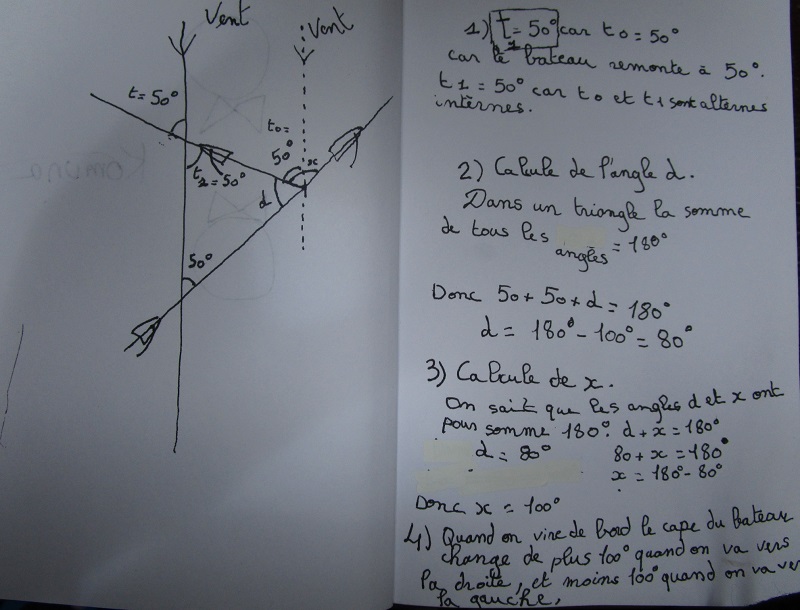 Vent
Vent
t = 50°
t0 =
50°
x
t1 = 50°
d
50°
1) t1 = 50° car t0 = 50°
car le bateau remonte à 50°.
t1 = 50° car t0 et t1 sont alternes
internes.
2) Calcule de l'angle d.
Dans un triangle la somme
de tous les angles = 180°
Donc 50 + 50 + d = 180°
d = 180° - 100° = 80°
3) Calcule de x.
On sait que les angles d et x ont
pour somme 180°. d + x = 180°
d = 80° 80 + x = 180°
x = 180° - 80°
Donc x = 100°
4) Quand on vire de bord le cape du bateau
change de plus 100° quand on va vers
la droite, et moins 100° quand on va vers
la gauche,